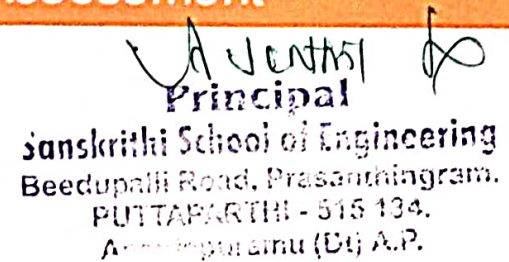 Principal
Sanskrithi School of Engineering
Beedupalli Road, Prasanthingram.
PUTTAPARTHI - 515 134.
(Dt) A.P.